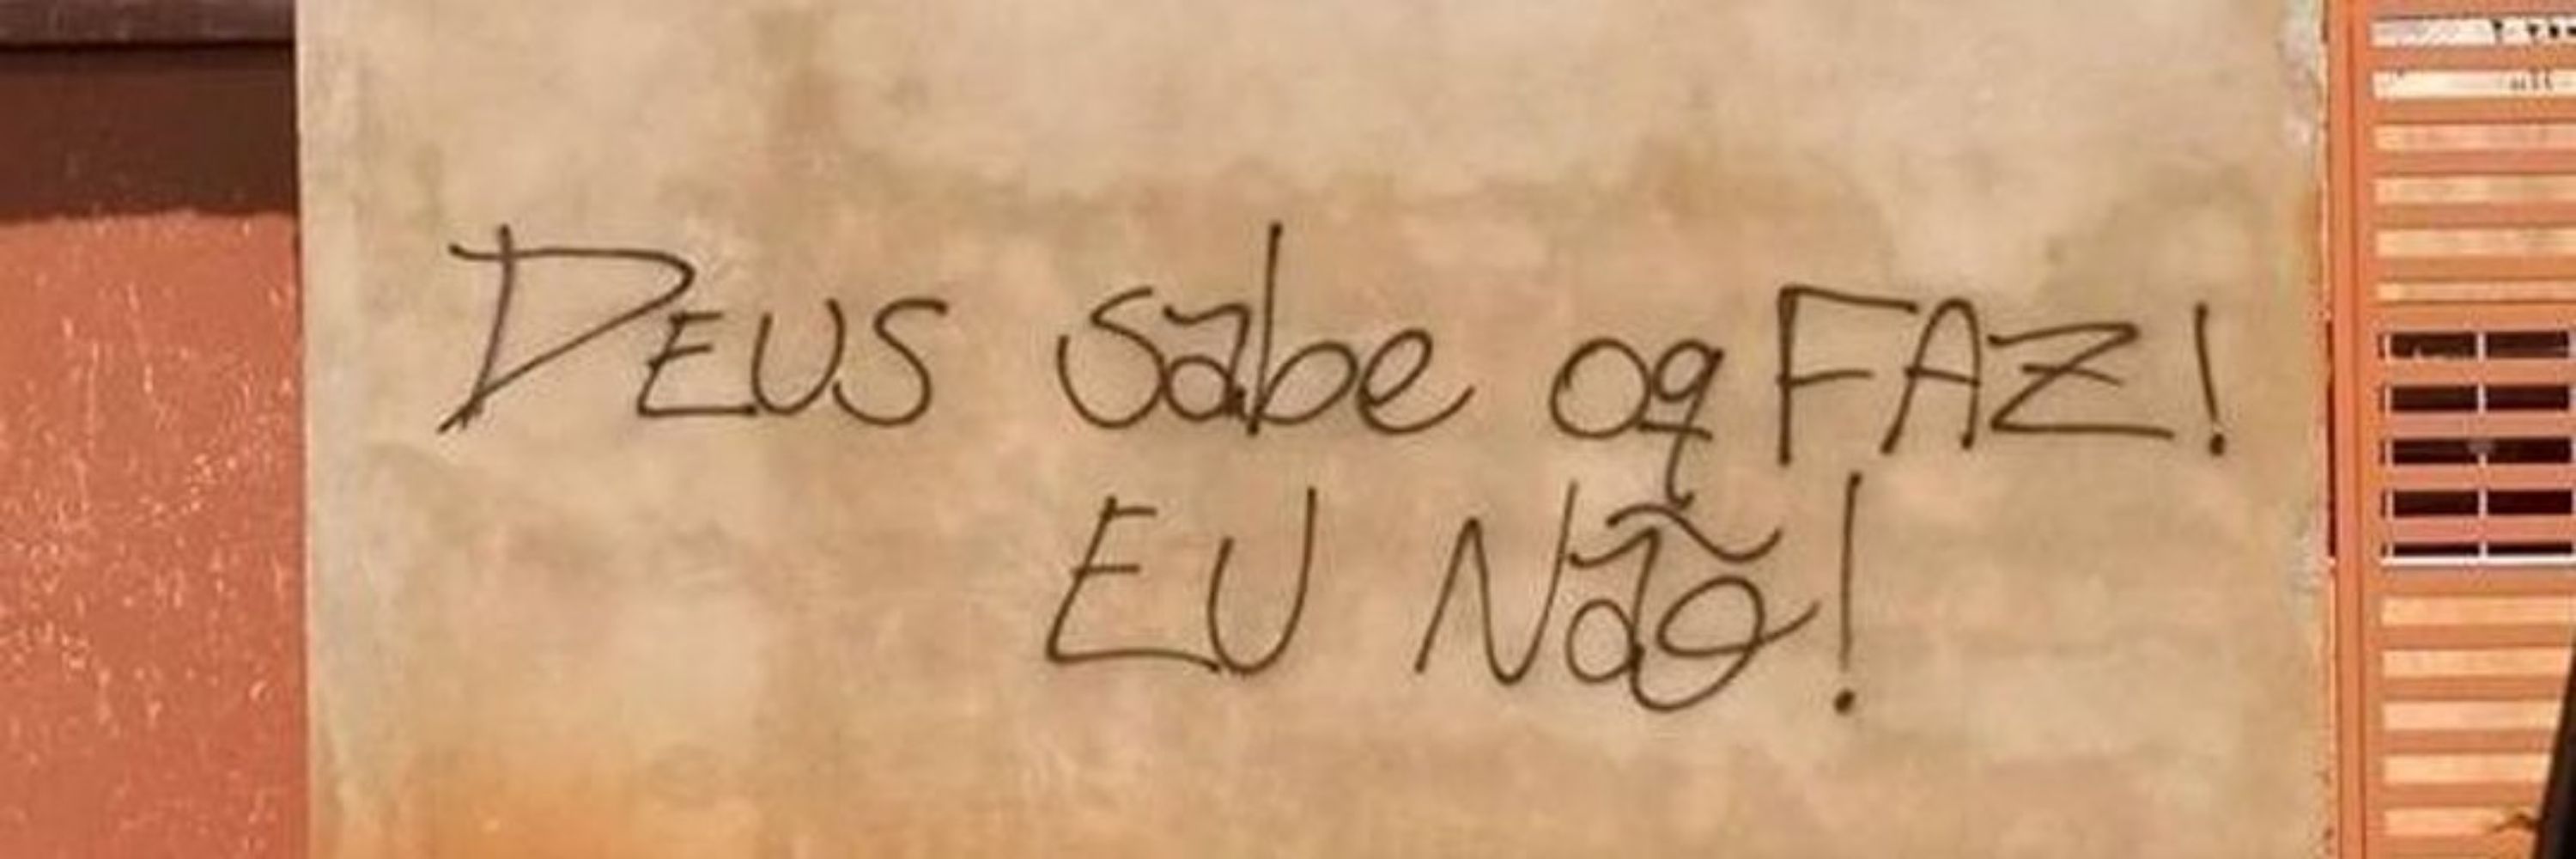 DEUS Sabe oq FAZ!
EU Não!